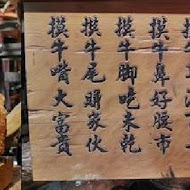 摸牛鼻好市
摸牛脚吃未乾
摸牛尾賺家伙
摸牛嘴大富貴